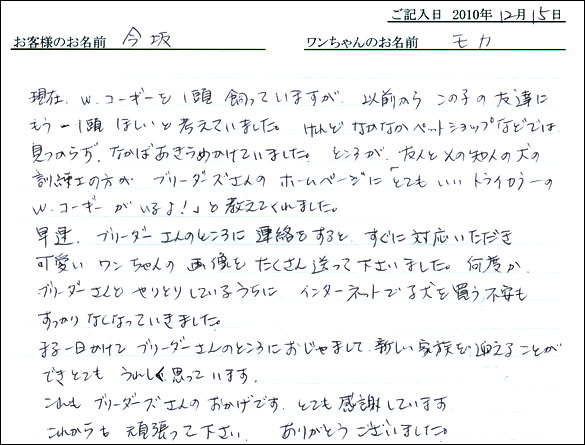 ご記入日 2010年 12月 15日
お客様のお名前 今坂 ワンちゃんのお名前 モカ
現在、W.コーギーを1頭飼っていますが、以前からこの子の友達に
もう一頭ほしいと考えていました。けれどなかなかペットショップなどでは
見つからず、なかばあきらめかけていました。ところが、友人とその知人の犬の
訓練士の方が ブリーダーズさんのホームページに「とてもいいトライカラーの
W.コーギーがいるよ!」と教えてくれました。
早速、ブリーダーさんのところに連絡をすると、すぐに対応いただき
可愛いワンちゃんの画像をたくさん送って下さいました。何度か
ブリーダーさんとやりとりしているうちに インターネットで子犬を買う不安も
すっかりなくなっていきました。
まる一日かけてブリーダーさんのところにおじゃまして、新しい家族を迎えることが
できとてもうれしく思っています。
これもブリーダーズさんのおかげです。とても感謝しています
これからも頑張って下さい。 ありがとうございました。